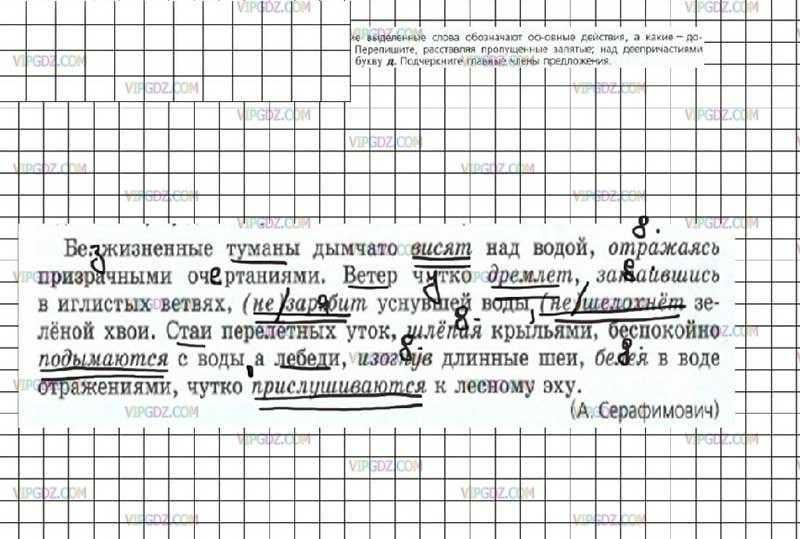 ие выделенные слова обозначают основные действия, а какие — до-
Перепишите, расставляя пропущенные запятые; над деепричастиями
букву д. Подчеркните главные члены предложения.
Безжизненные туманы дымчато висят над водой, отражаясь
призрачными очертаниями. Ветер чутко дремлет, затаившись
в иглистых ветвях, (не)зарябит уснувшей воды, (не)шелохнёт зе-
лёной хвои. Стаи перелётных уток, шлёпая крыльями, беспокойно
подымаются с воды, а лебеди, изогнув длинные шеи, белея в воде
отражениями, чутко прислушиваются к лесному эху.
(А. Серафимович)